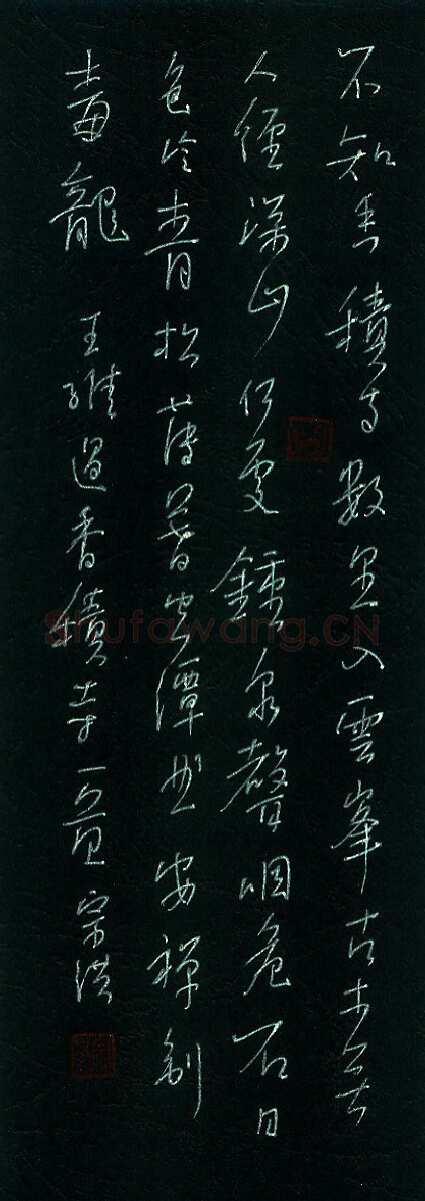 不知香積寺數里入雲峯古木無
人經深山何處鍾泉聲咽危石日
色冷青松薄暮空潭曲安禪制
毒龍 王維過香積寺一首 宗洪
Shufawang.CN